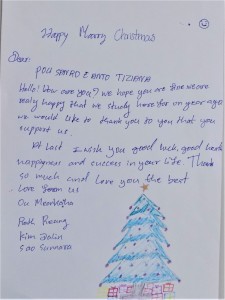 Happy Marry Christmas
Dear:
POU SAVRO E ANTO TIZIANA
Hello! How are you? we hope you are fine we are
realy happy that we study here for on year ago
we would like to thank you so you that you
support us.
At last I wish you good luck, good health
happyness and success in your life. Thank
so much and love you the best
Love from us
Ou Monirotha
Roth Reang
Kim Zolin
Sao Sumara